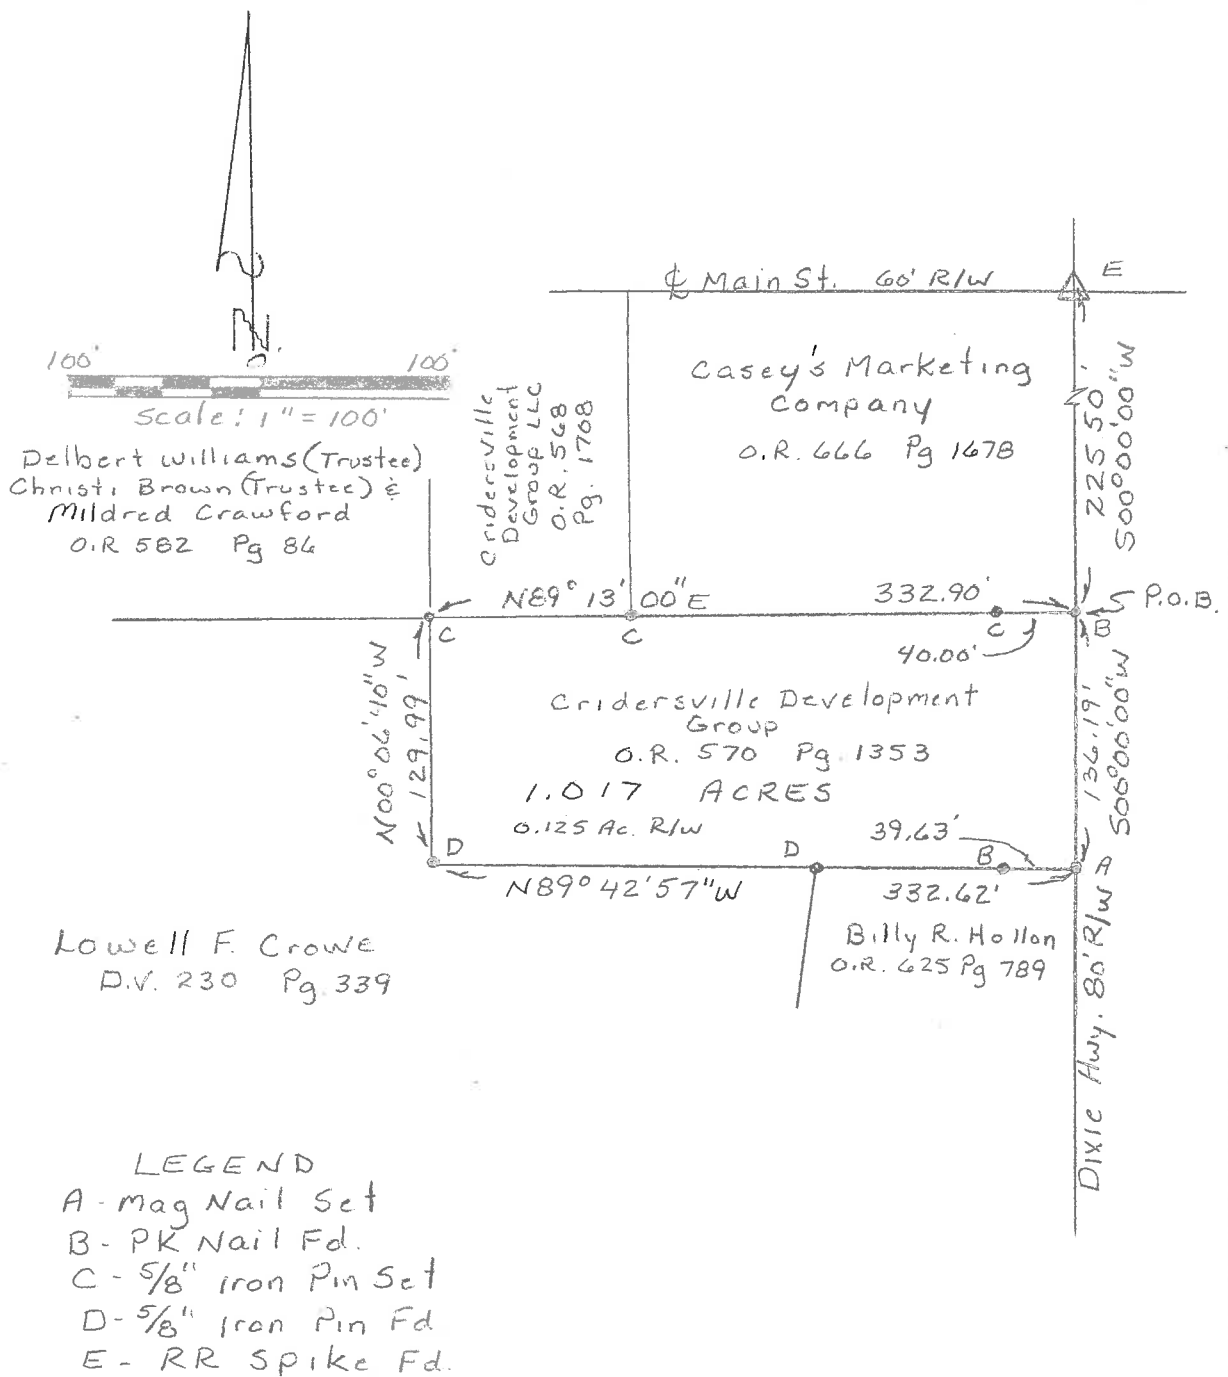 N.
100' 100'
Scale: 1" = 100'
Delbert Williams (Trustee)
Christi Brown (Trustee) &
Mildred Crawford
O.R 582 Pg 86
Cridersville
Development
Group LLC
O.R. 568
Pg. 1708
℄ Main St. 60' R/W
E
Casey's Marketing
Company
O.R. 666 Pg 1678
225.50'
S00°00'00"W
N89°13'00"E 332.90'
P.O.B.
C C C B
40.00'
N00°06'40"W
129.99'
Cridersville Development
Group
O.R. 570 Pg. 1353
1.017 ACRES
0.125 Ac. R/W
136.19'
S00°00'00"W
39.63'
D D B A
N89°42'57"W 332.62'
Billy R. Hollon
O.R. 625 Pg 789
Dixie Hwy. 80' R/W
Lowell F. Crowe
D.V. 230 Pg. 339
LEGEND
A - Mag Nail Set
B - PK Nail Fd.
C - 5/8" Iron Pin Set
D - 5/8" Iron Pin Fd
E - RR Spike Fd.